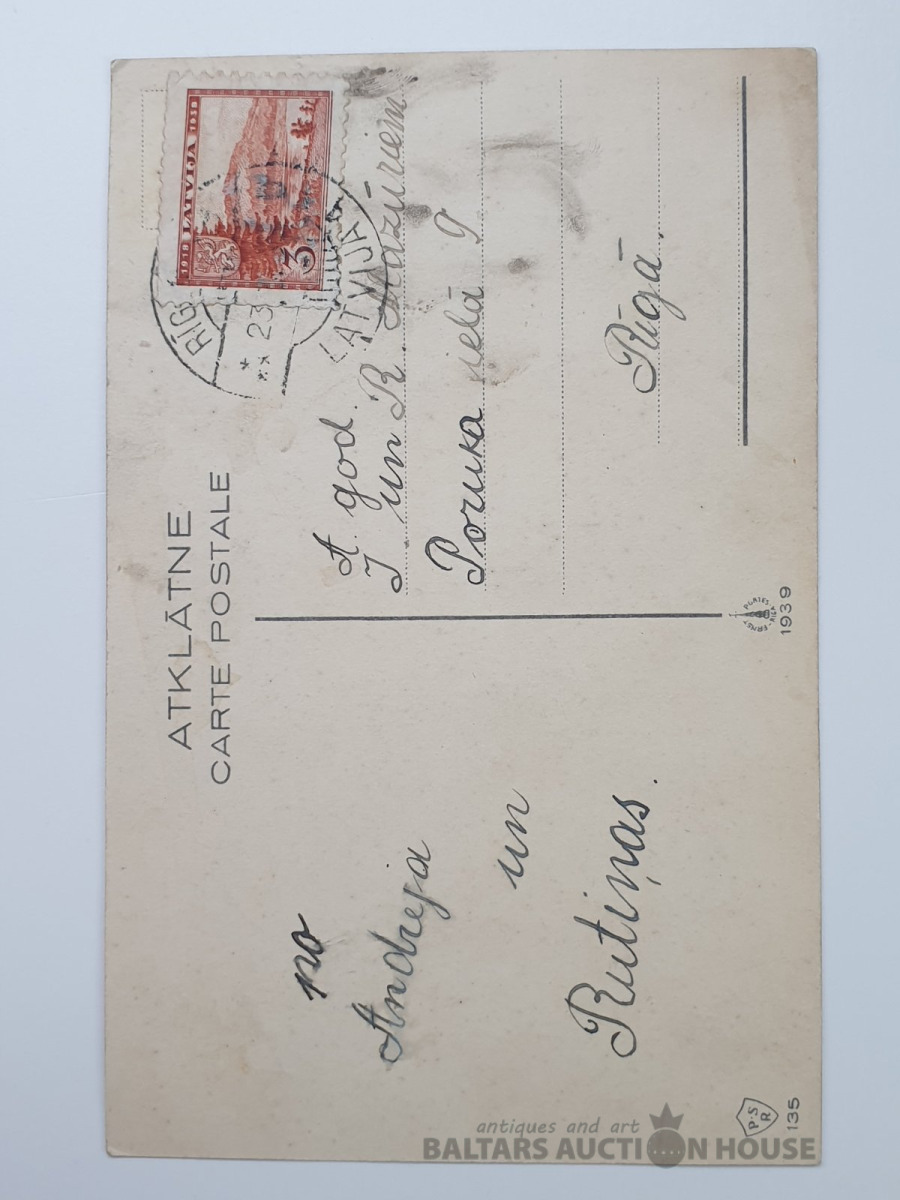 ATKLĀTNE
CARTE POSTALE
no
Andreja
un
Rutiņas.
1918 LATVIJA 1938
3
RĪG
23
LATVIJA
A. god.
J un R. Mazūriem
Poruka ielā 9
Rīgā.
P.S
R
135
ERNST PLATES RIGA
1939
antiques and art
BALTARS AUCTION HOUSE